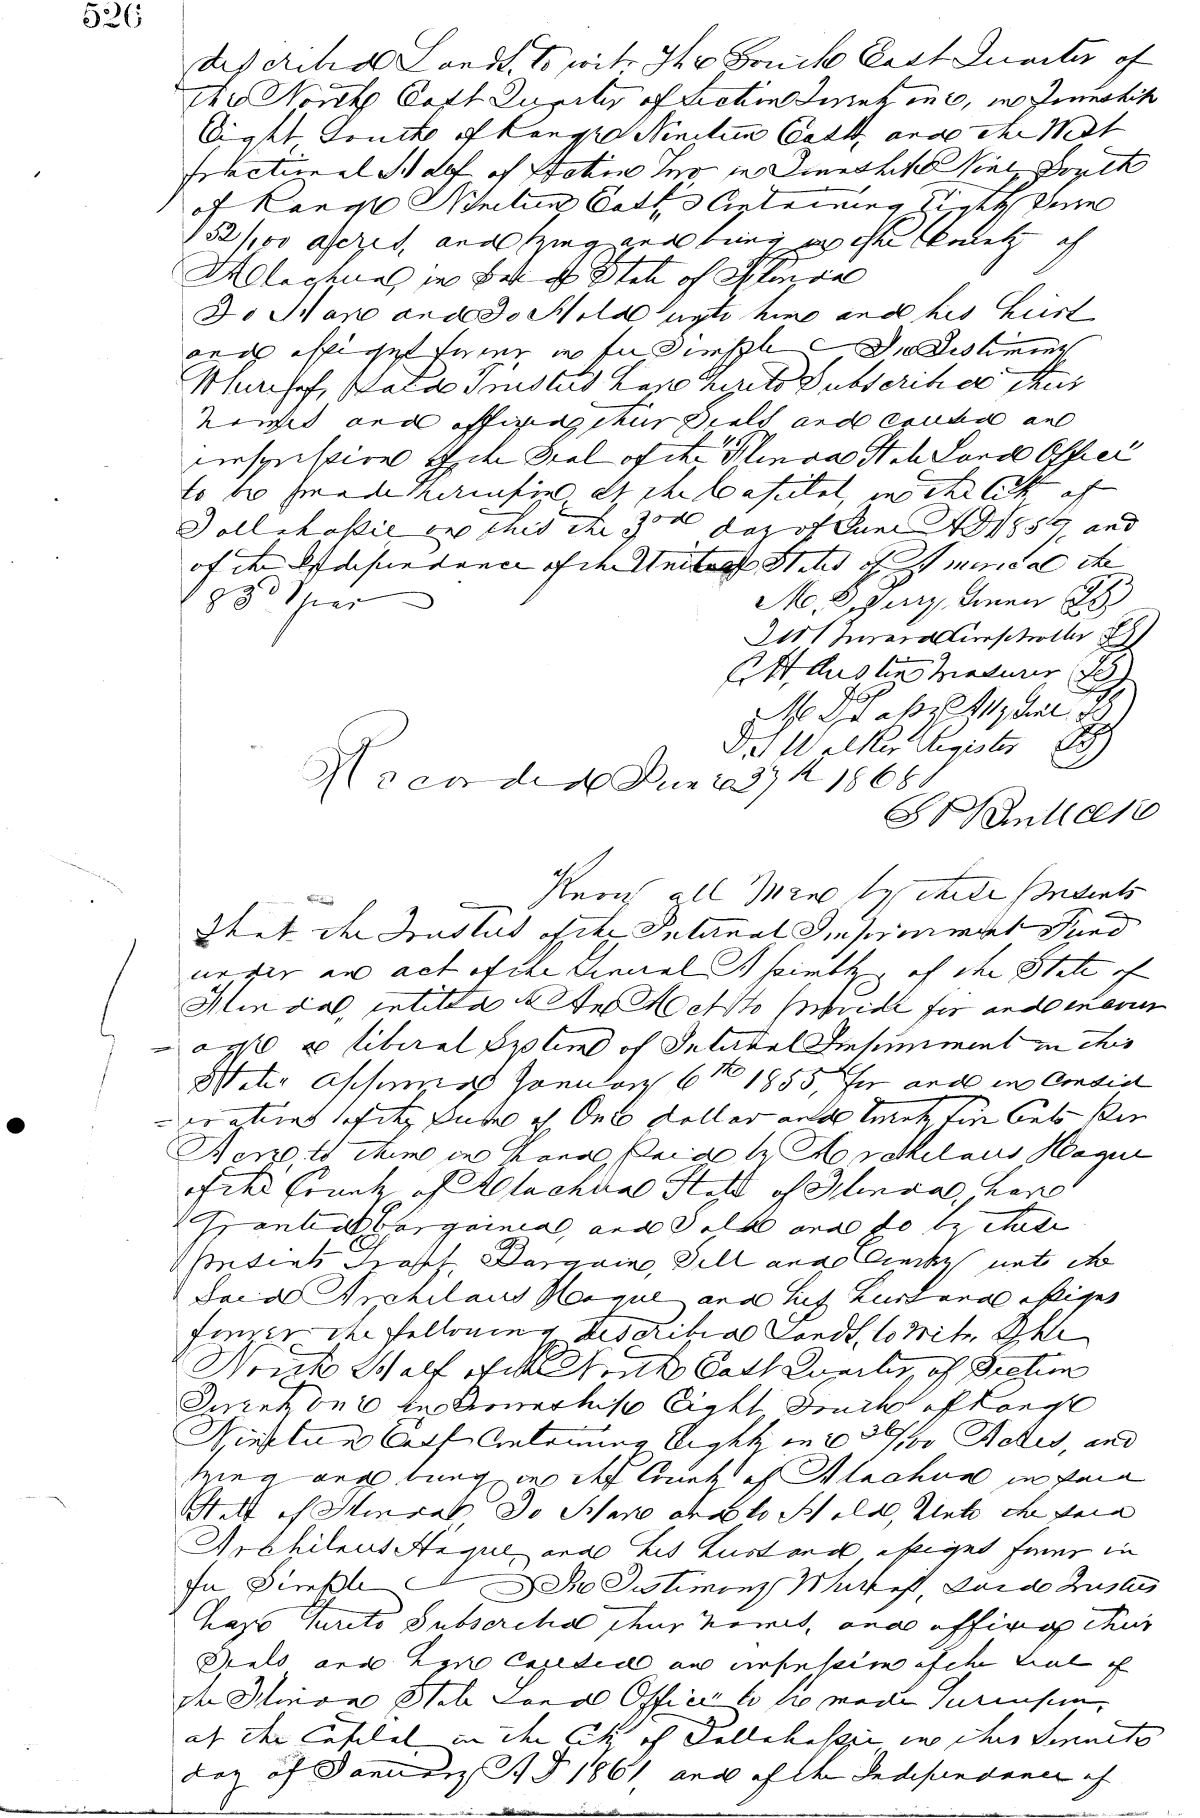 526
described Lands, to wit. The South East Quarter of
the North East Quarter of Section Twenty one, in Township
Eight, South of Range Nineteen East, and the West
fractional Half of Section Two in Township Nine South
of Range Nineteen East, Containing Eighty Seven
52/100 acres, and lying and being in the County of
Alachua, in Said State of Florida
To Have and To Hold unto him and his heirs
and assigns forever in fee Simple In Testimony
Whereof, Said Trustees have hereto Subscribed their
names and affixed their Seals and caused an
impression of the Seal of the "Florida State Land Office"
to be made hereupon, at the Capital, in the City of
Tallahassee on this the 3rd day of June AD 1859, and
of the Independence of the United States of America the
83d Year
M. S. Perry, Governor LS
Comptroller LS
C H, Austin Treasurer LS
M D Atty Genl LS
D. S Walker Register LS
Recorded June 27th 1868
Clk
Know all Men by these presents
That the Trustees of the Internal Improvement Fund
under an act of the General Assembly, of the State of
Florida, entitled "An Act to provide for and encour
=age a liberal System of Internal Improvement in this
State" Approved January 6th 1855, for and in Consid
=eration of the Sum of One dollar and twenty five Cents Per
Acre, to them in hand Paid by Archelaus Hague
of the County of Alachua State of Florida, have
Granted, bargained, and Sold and do by these
presents Grant, Bargain, Sell and Convey unto the
Said Archelaus Hague and his heirs and assigns
forever the following described Lands, to wit. The
North Half of the North East Quarter, of Section
Twenty One in Township Eight South of Range
Nineteen East Containing Eighty one 36/100 Acres, and
lying and being in the County of Alachua in said
State of Florida, To Have and to Hold, Unto the said
Archelaus Hague, and his heirs and assigns forever in
fee Simple In Testimony Whereof, Said Trustees
have hereto Subscribed their names, and affixed their
Seals and have caused an impression of the Seal of
the Florida State Land Office" to be made hereupon,
at the Capital in the City of Tallahassee on this Seventh
day of January A D 1861, and of the Independence of